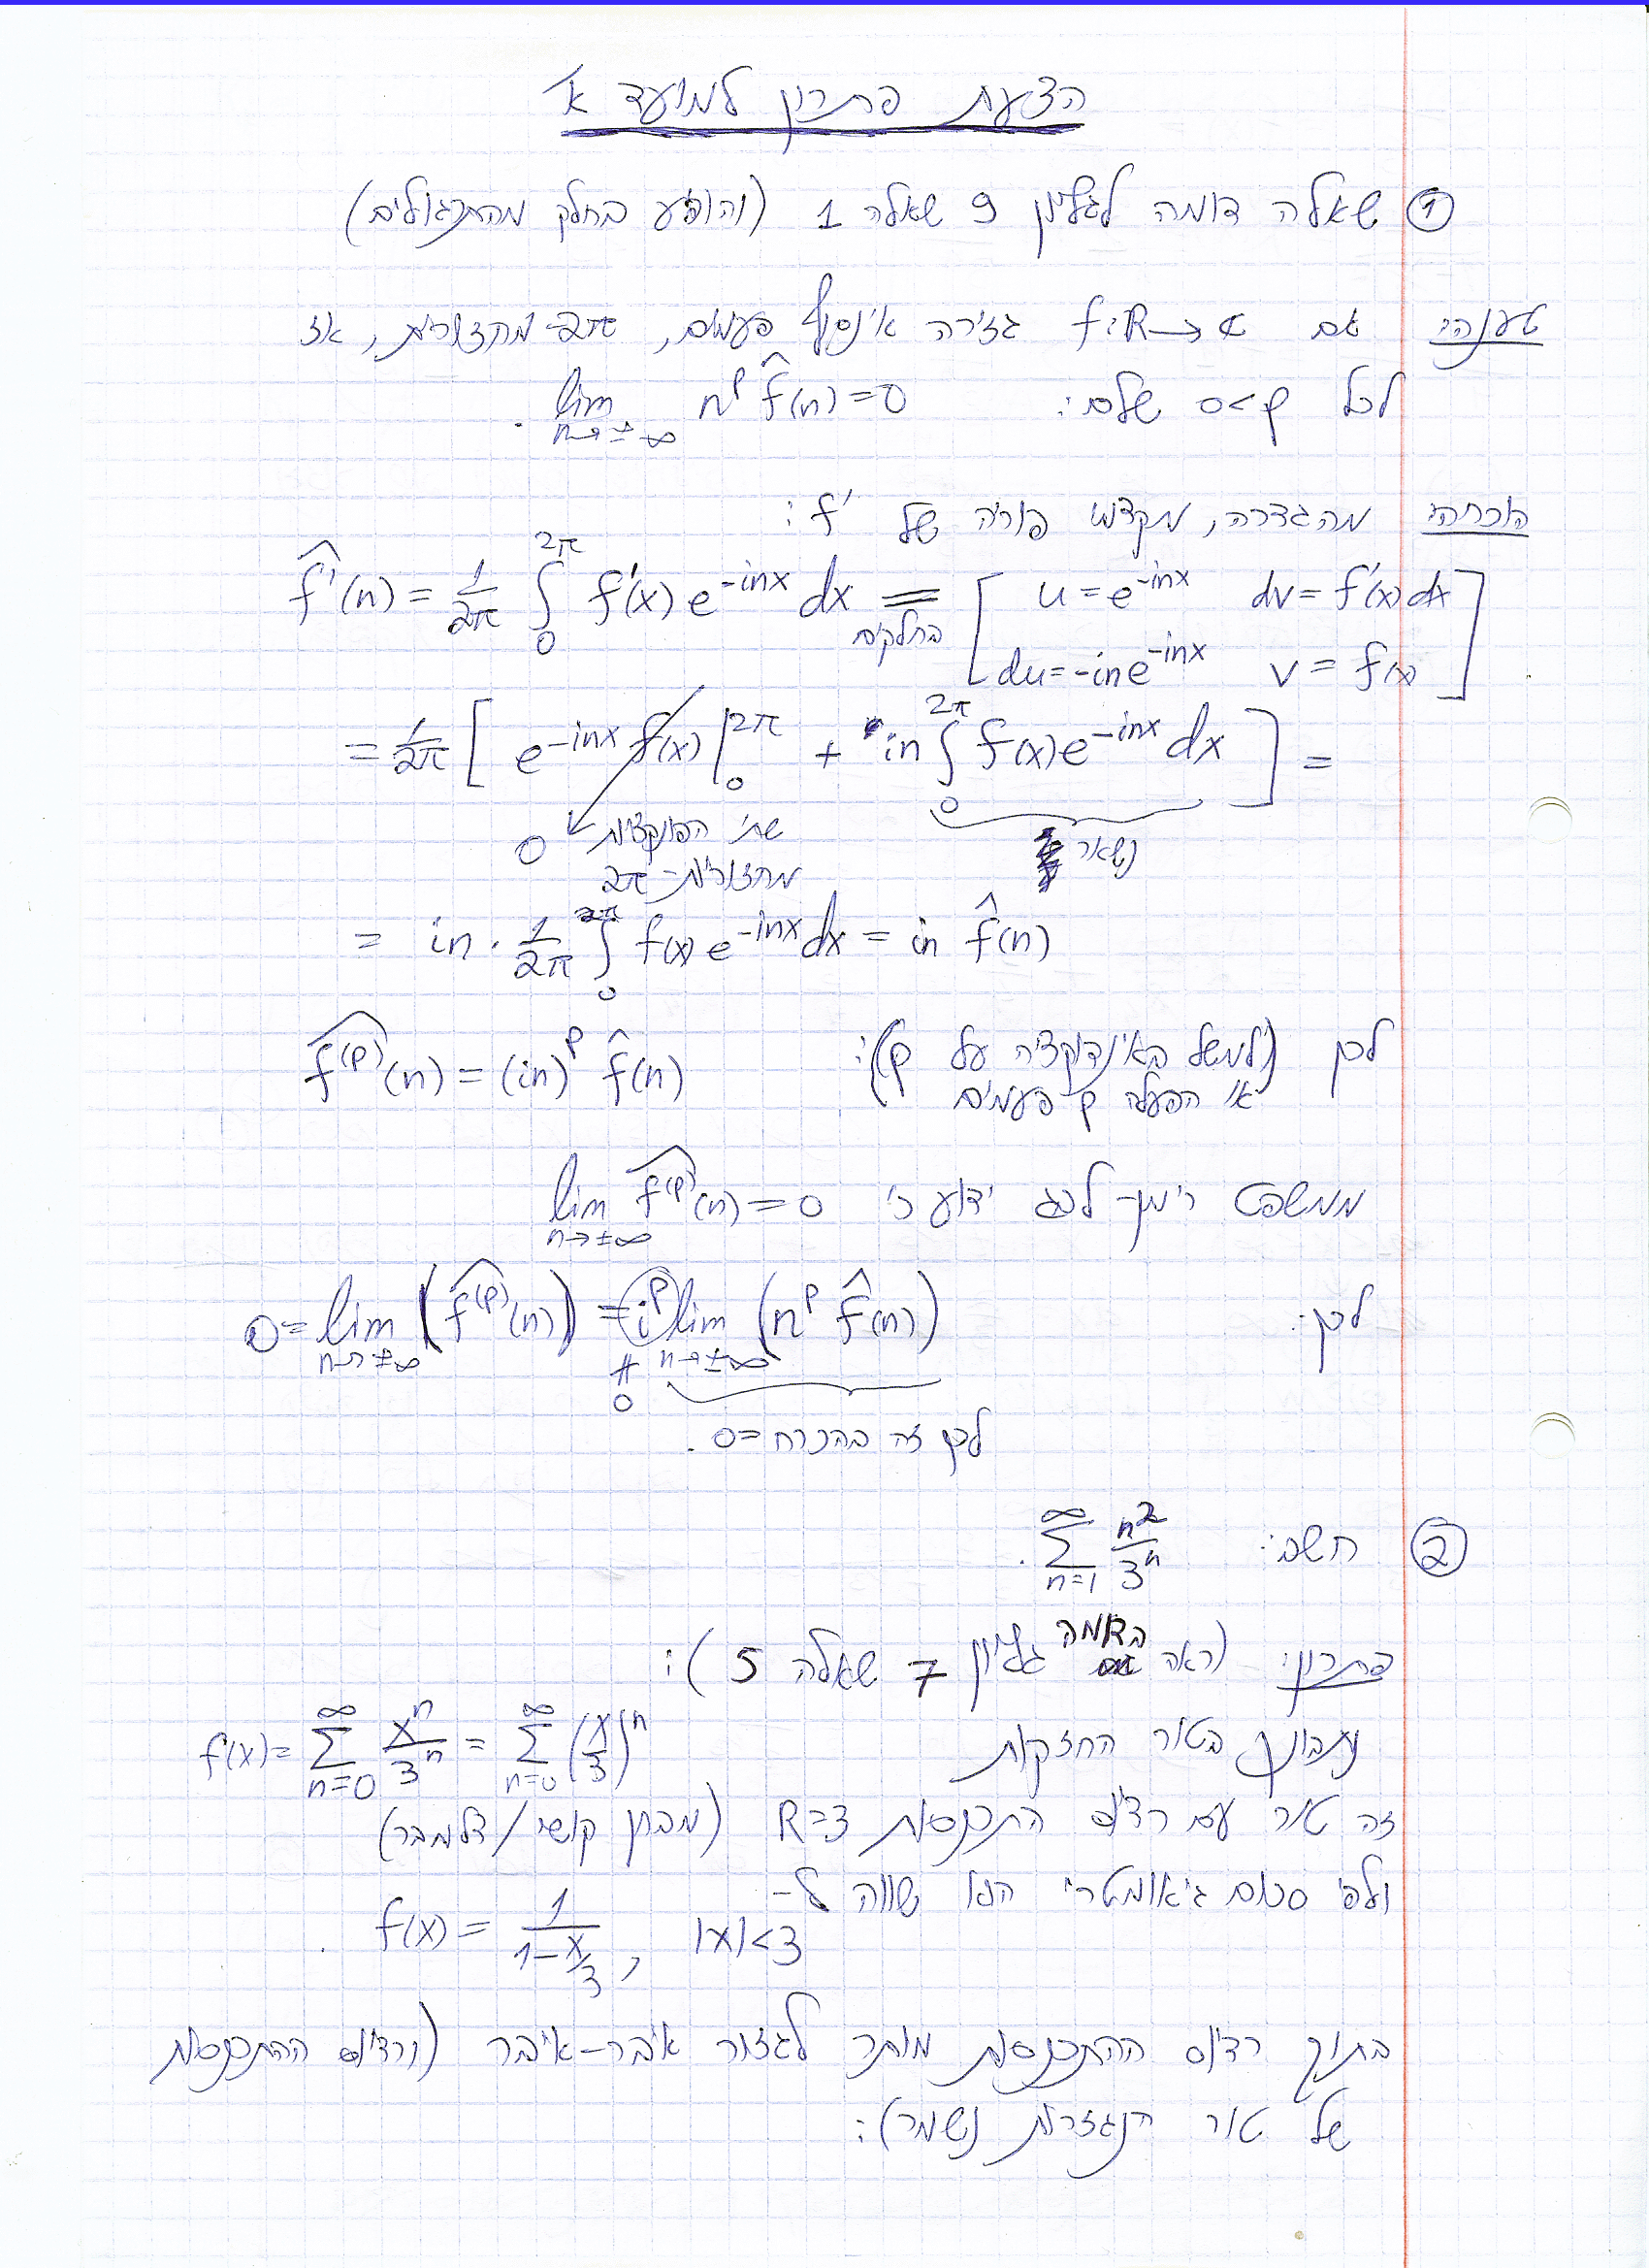 הצעת פתרון למועד א'
① שאלה דומה לגליון 9 שאלה 1 (והופיע בחלק מהתרגולים)
טענה: אם f:ℝ→ℂ גזירה אינסוף פעמים, 2π-מחזורית, אז
לכל 0<p שלם: lim_{n→±∞} n^p f̂(n)=0 .
הוכחה: מהגדרה, מקדמי פוריה של f':
\hat{f'}(n) = \frac{1}{2π} ∫_0^{2π} f'(x) e^{-inx} dx = [ u=e^{-inx} dv=f'(x)dx
בחלקים du=-ine^{-inx} v=f(x) ]
= \frac{1}{2π} [ e^{-inx} f(x) |_0^{2π} + in ∫_0^{2π} f(x) e^{-inx} dx ] =
0 שתי הפונקציות נשאר
מחזוריות-2π
= in · \frac{1}{2π} ∫_0^{2π} f(x) e^{-inx} dx = in f̂(n)
לכן (למשל באינדוקציה על p): \hat{f^{(p)}}(n) = (in)^p f̂(n)
או הפעלה p פעמים
ממשפט רימן-לבג ידוע כי lim_{n→±∞} \hat{f^{(p)}}(n) = 0
לכן: 0 = lim_{n→±∞} (\hat{f^{(p)}}(n)) = i^p lim_{n→±∞} (n^p f̂(n))
≠ 0
לכן זה בהכרח =0.
② חשב: \sum_{n=1}^{∞} \frac{n^2}{3^n} .
פתרון: (ראה בדומה גליון 7 שאלה 5):
נתבונן בטור החזקות f(x) = \sum_{n=0}^{∞} \frac{x^n}{3^n} = \sum_{n=0}^{∞} (\frac{x}{3})^n
זה טור עם רדיוס התכנסות R=3 (מבחן קושי/דלמבר)
ולפי סכום גיאומטרי הוא שווה ל-
f(x) = \frac{1}{1-x/3} , |x|<3 .
בתוך רדיוס ההתכנסות מותר לגזור איבר-איבר (ורדיוס ההתכנסות
של טור הנגזרות נשמר):